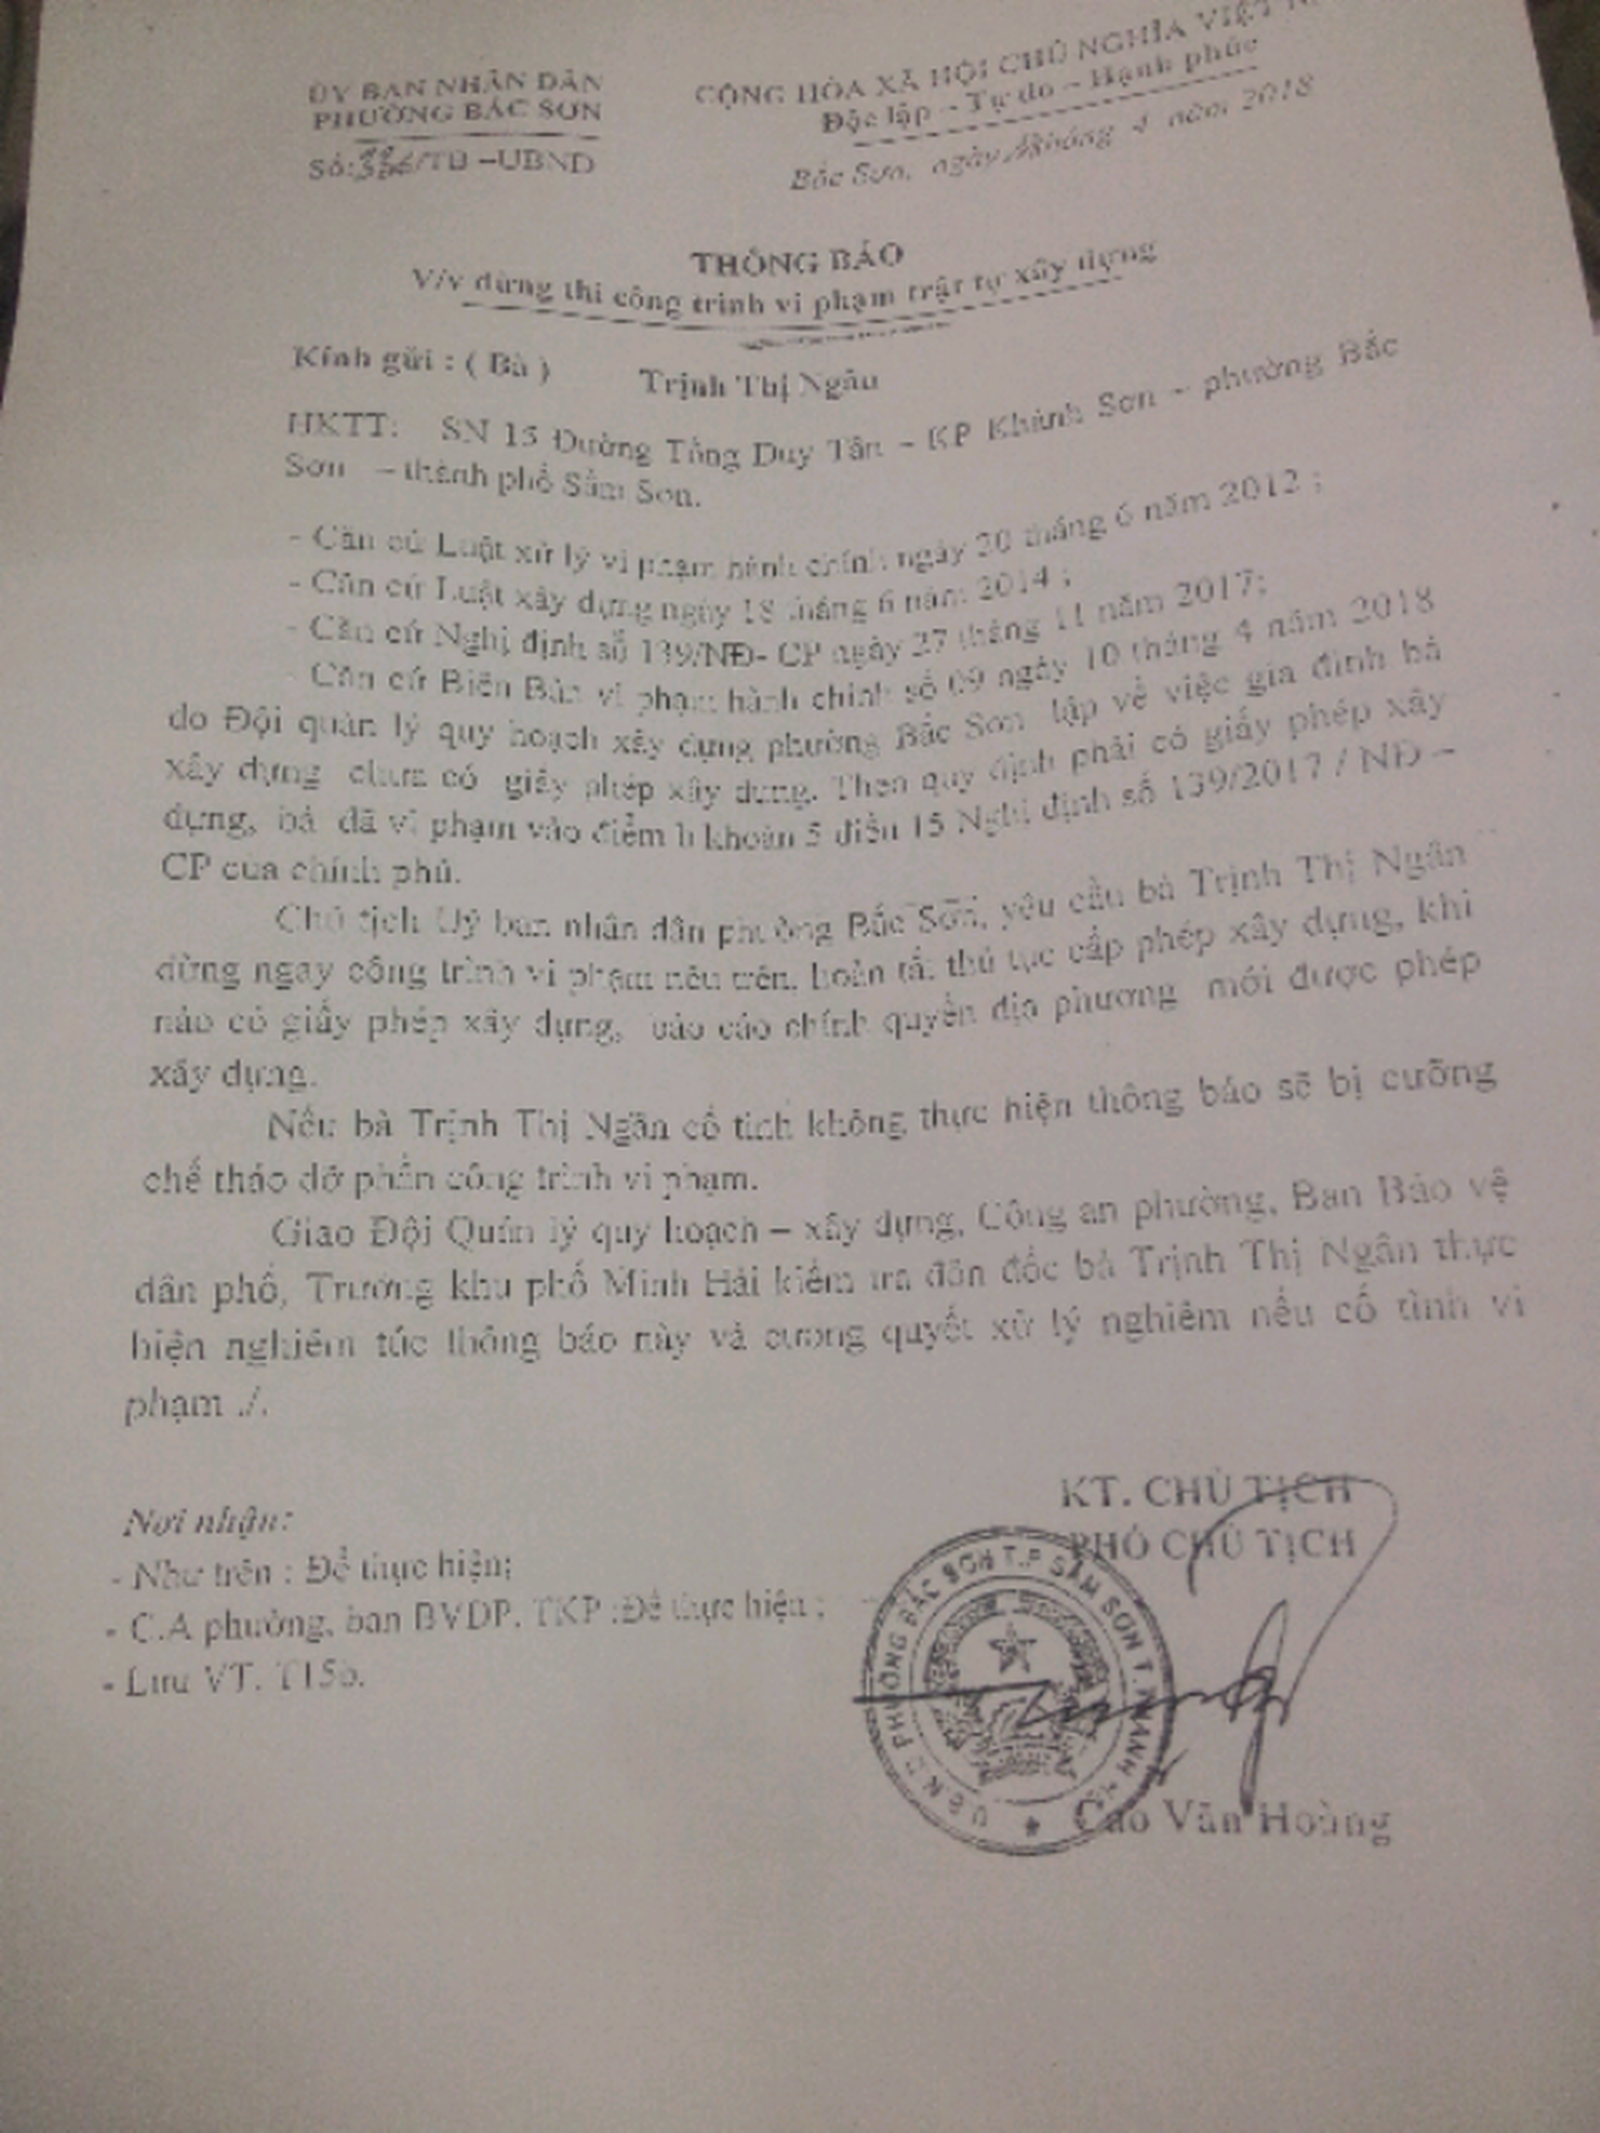 ỦY BAN NHÂN DÂN
PHƯỜNG BẮC SƠN
Số: /TB –UBND
CỘNG HÒA XÃ HỘI CHỦ NGHĨA VIỆT
Độc lập – Tự do – Hạnh phúc
Bắc Sơn, ngày tháng 4 năm 2018
THÔNG BÁO
V/v dừng thi công trình vi phạm trật tự xây dựng
Kính gửi : ( Bà ) Trịnh Thị Ngân
HKTT: SN 15 Đường Tống Duy Tân – KP Khánh Sơn – phường Bắc
Sơn – thành phố Sầm Sơn.
- Căn cứ Luật xử lý vi phạm hành chính ngày 20 tháng 6 năm 2012 ;
- Căn cứ Luật xây dựng ngày 18 tháng 6 năm 2014 ;
- Căn cứ Nghị định số 139/NĐ- CP ngày 27 tháng 11 năm 2017;
- Căn cứ Biên Bản vi phạm hành chính số 09 ngày 10 tháng 4 năm 2018
do Đội quản lý quy hoạch xây dựng phường Bắc Sơn lập về việc gia đình bà
xây dựng chưa có giấy phép xây dựng. Theo quy định phải có giấy phép xây
dựng, bà đã vi phạm vào điểm b khoản 5 điều 15 Nghị định số 139/2017 / NĐ –
CP của chính phủ.
Chủ tịch Uỷ ban nhân dân phường Bắc Sơn, yêu cầu bà Trịnh Thị Ngân
dừng ngay công trình vi phạm nêu trên, hoàn tất thủ tục cấp phép xây dựng, khi
nào có giấy phép xây dựng, báo cáo chính quyền địa phương mới được phép
xây dựng.
Nếu bà Trịnh Thị Ngân cố tình không thực hiện thông báo sẽ bị cưỡng
chế tháo dỡ phần công trình vi phạm.
Giao Đội Quản lý quy hoạch – xây dựng, Công an phường, Ban Bảo vệ
dân phố, Trưởng khu phố Minh Hải kiểm tra đôn đốc bà Trịnh Thị Ngân thực
hiện nghiêm túc thông báo này và cương quyết xử lý nghiêm nếu cố tình vi
phạm ./.
Nơi nhận:
- Như trên : Để thực hiện;
- C.A phường, ban BVDP, TKP :Để thực hiện ;
- Lưu VT. T15b.
KT. CHỦ TỊCH
PHÓ CHỦ TỊCH
U.B.N.D PHƯỜNG BẮC SƠN T.P SẦM SƠN T. THANH
Cao Văn Hoàng